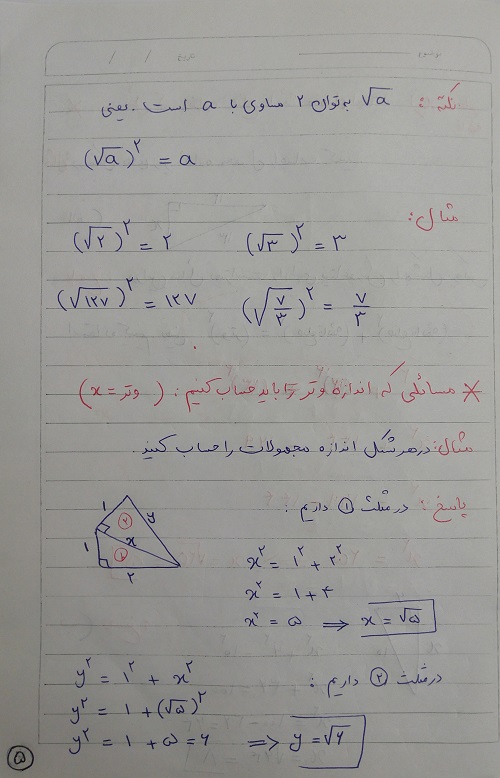 نکته: √a به توان ۲ مساوی با a است. یعنی
(√a)^۲ = a
مثال:
(√۲)^۲ = ۲   (√۳)^۲ = ۳
(√۱۲۷)^۲ = ۱۲۷   (√(۷/۳))^۲ = ۷/۳
* مسائلی که اندازه وتر را باید حساب کنیم: (وتر = x)
مثال: در هر شکل اندازه مجهولات را حساب کنید.
پاسخ: در مثلث ① داریم:
۱ ۲ y
۱ x ۱
۲
x^۲ = ۱^۲ + ۲^۲
x^۲ = ۱ + ۴
x^۲ = ۵ ⟹ x = √۵
در مثلث ② داریم:
y^۲ = ۱^۲ + x^۲
y^۲ = ۱ + (√۵)^۲
y^۲ = ۱ + ۵ = ۶ ⟹ y = √۶
۵